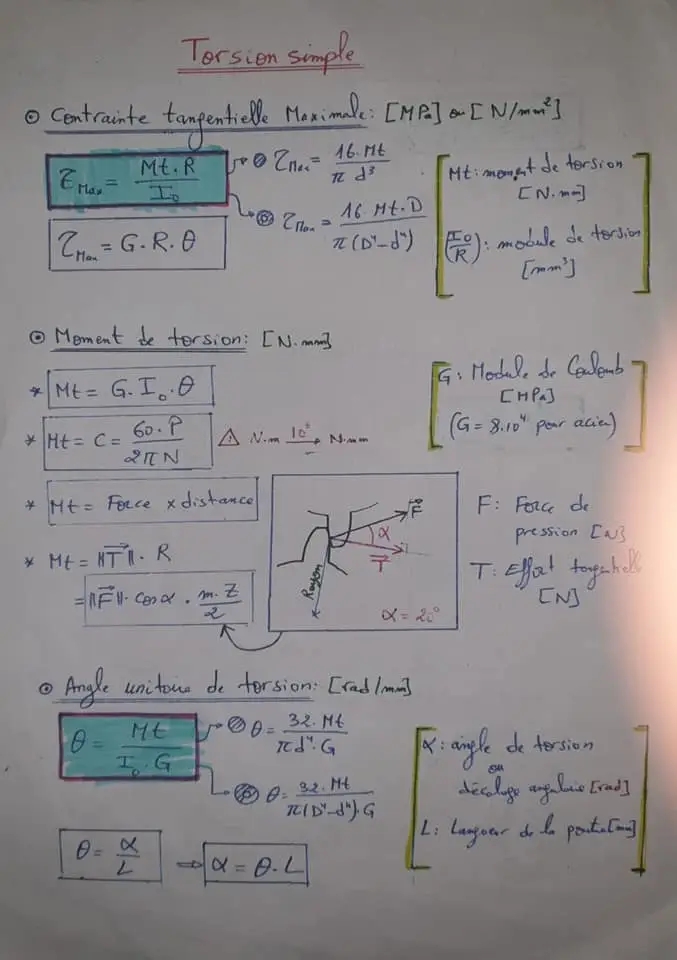 Torsion simple
⊙ Contrainte tangentielle Maximale: [MPa] ou [N/mm²]
τMax = Mt.R / I₀
τMax = 16.Mt / π d³
τMax = 16.Mt.D / π(D⁴-d⁴)
τMax = G.R.θ
Mt: moment de torsion
[N.mm]
(I₀/R): module de torsion
[mm³]
⊙ Moment de torsion: [N.mm]
* Mt = G.I₀.θ
* Mt = C = 60.P / 2πN
⚠ N.m 10³→ N.mm
G: Module de Coulomb
[MPa]
(G = 8.10⁴ pour acier)
* Mt = Force x distance
* Mt = ||T→||. R
= ||F→||. cos α . m.Z / 2
F→
α
T→
Rayon
α = 20°
F: Force de
pression [N]
T: Effort tangentielle
[N]
⊙ Angle unitaire de torsion: [rad/mm]
θ = Mt / I₀.G
θ = 32.Mt / πd⁴.G
θ = 32.Mt / π(D⁴-d⁴).G
θ = α / L
⇒ α = θ.L
α: angle de torsion
ou
décalage angulaire [rad]
L: Longueur de la poutre [mm]